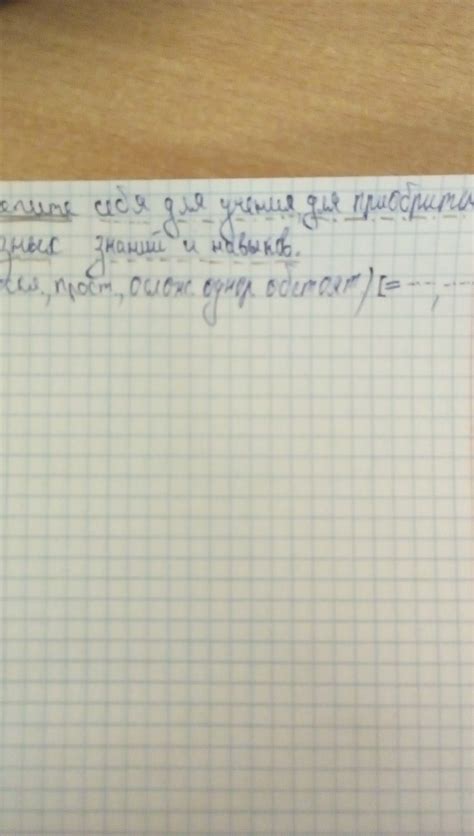 себя для учения для приобрите
зных знаний и навыков.
прост., ослож. однор. обстоят) [= -.-.-, -.-